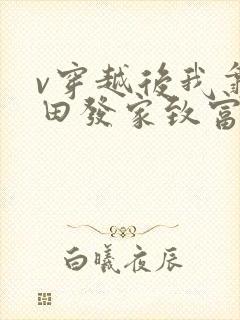 v穿越後我
田發家致富
白曦夜辰